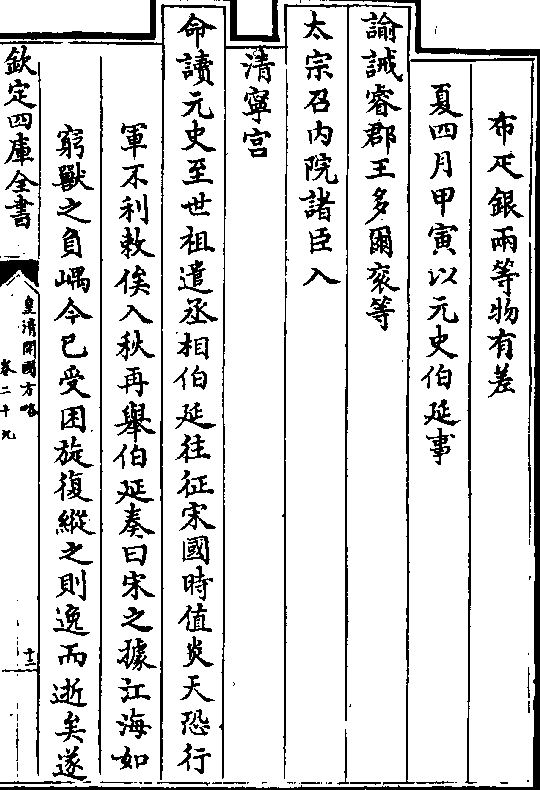 布疋銀兩等物有差
夏四月甲寅以元史伯延事
諭誡睿郡王多爾衮等
太宗召內院諸臣入
清寧宮
命讀元史至世祖遣丞相伯延往征宋國時值炎天恐行
軍不利敕俟入秋再舉伯延奏曰宋之據江海如
窮獸之負嵎今已受困旋復縱之則逸而逝矣遂
欽定四庫全書
皇清開國方略
卷二十九
十三